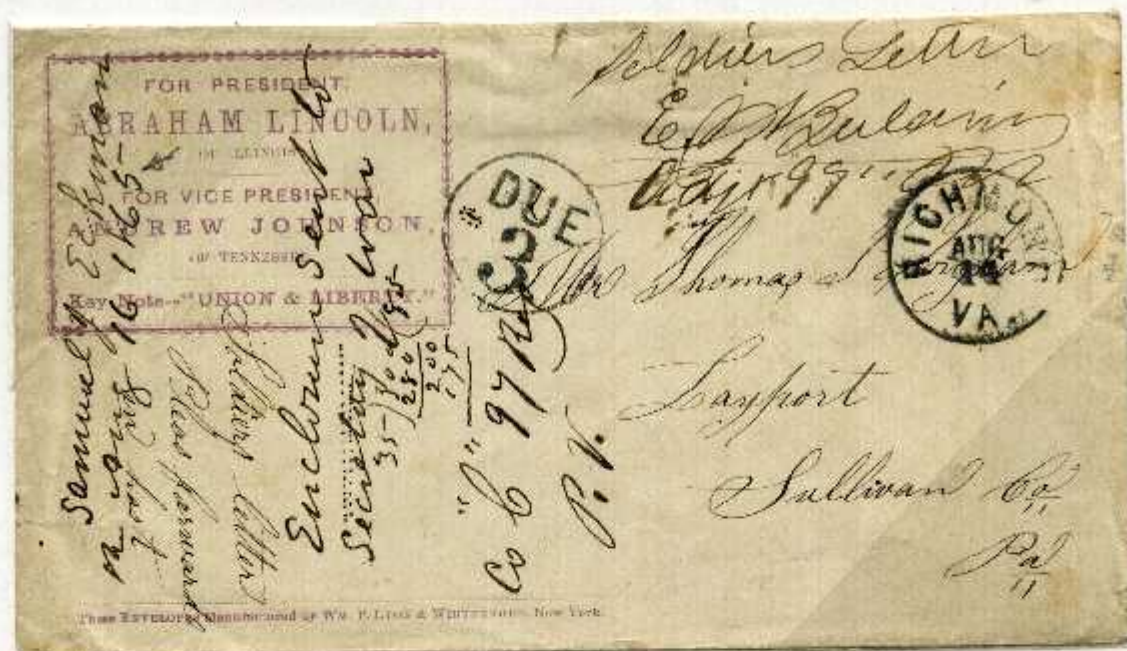 FOR PRESIDENT,
ABRAHAM LINCOLN,
OF ILLINOIS
FOR VICE PRESIDENT
ANDREW JOHNSON,
OF TENNESSEE
Key Note--"UNION & LIBERTY."
Soldiers Letter
Adjt 97th
DUE
3
RICHMOND
AUG
VA.
Mr Thomas
Layport
Sullivan Co
Pa
Samuel Eckman
16 1865
Soldiers letter
Pleas forward
Enclosure sent to
Secretary of War
35
280
200
175
Co "C" 97 Reg
P. V.
These ENVELOPES Manufactured by WM. P. LYON & New York.